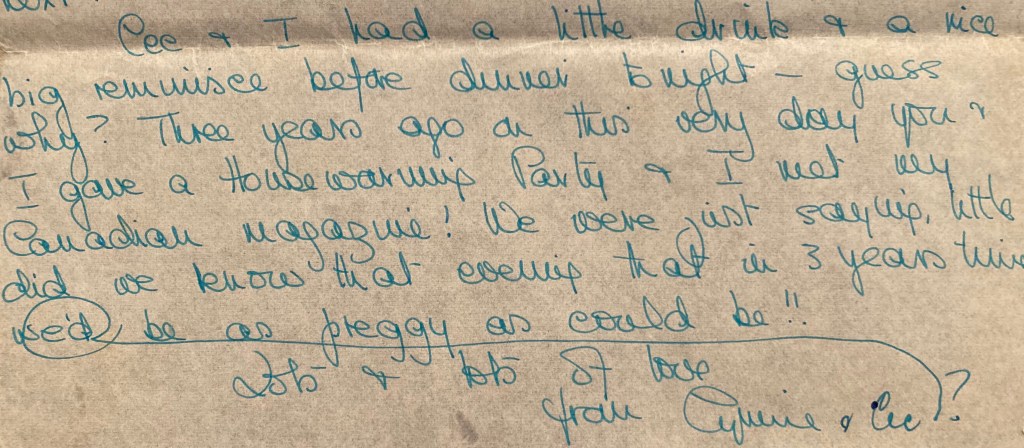 Cee & I had a little drink & a nice
big reminisce before dinner tonight – guess
why? Three years ago on this very day you &
I gave a Housewarming Party & I met my
Canadian magazine! We were just saying, little
did we know that evening that in 3 years time
we'd be as preggy as could be!!
Lots & lots of love
from & Cee ?